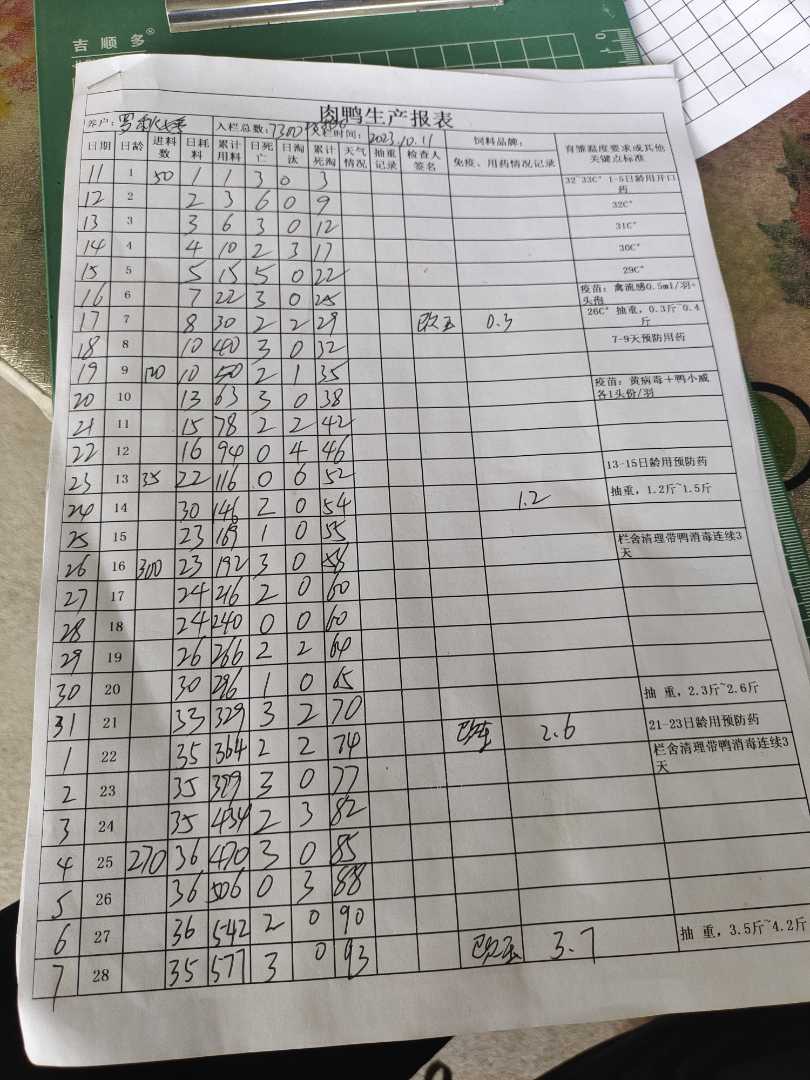 吉顺多
肉鸭生产报表
养户: 罗 入栏总数: 7300 栏时间: 2023.10.11 饲料品牌:
日期 日龄 进料数 日耗料 累计用料 日死亡 日淘汰 累计死淘 天气情况 抽重记录 检查人签名 免疫、用药情况记录 育雏温度要求或其他关键点标准
11 1 50 1 1 3 0 3 32~33C° 1-5日龄用开口药
12 2 2 3 6 0 9 32C°
13 3 3 6 3 0 12 31C°
14 4 4 10 2 3 17 30C°
15 5 5 15 5 0 22 29C°
16 6 7 22 3 0 25 疫苗: 禽流感0.5ml/羽+头孢
17 7 8 30 2 2 29 0.3 26C° 抽重, 0.3斤~0.4斤
18 8 10 40 3 0 32 7-9天预防用药
19 9 120 10 50 2 1 35 疫苗: 黄病毒+鸭小威各1头份/羽
20 10 13 63 3 0 38
21 11 15 78 2 2 42
22 12 16 94 0 4 46
23 13 35 22 116 0 6 52 13-15日龄用预防药
24 14 30 146 2 0 54 1.2 抽重, 1.2斤~1.5斤
25 15 23 169 1 0 55
26 16 300 23 192 3 0 58 栏舍清理带鸭消毒连续3天
27 17 24 216 2 0 60
28 18 24 240 0 0 60
29 19 26 266 2 2 64
30 20 30 296 1 0 65 抽 重, 2.3斤~2.6斤
31 21 33 329 3 2 70 2.6 21-23日龄用预防药
1 22 35 364 2 2 74 栏舍清理带鸭消毒连续3天
2 23 35 399 3 0 77
3 24 35 434 2 3 82
4 25 270 36 470 3 0 85
5 26 36 506 0 3 88
6 27 36 542 2 0 90
7 28 35 577 3 0 93 3.7 抽 重, 3.5斤~4.2斤